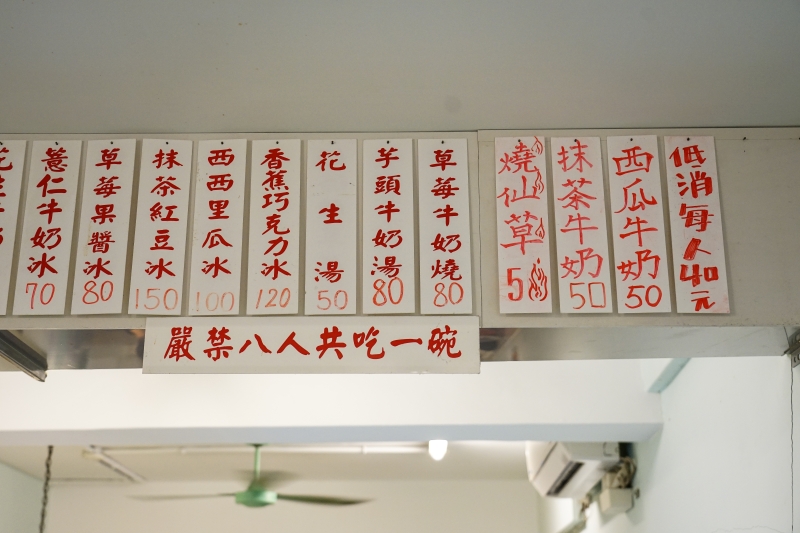 薏仁牛奶冰
70
草莓果醬冰
80
抹茶紅豆冰
150
西西里瓜冰
100
香蕉巧克力冰
120
花生湯
50
芋頭牛奶湯
80
草莓牛奶燒
80
燒仙草
5
抹茶牛奶
50
西瓜牛奶
50
低消每人40元
嚴禁八人共吃一碗